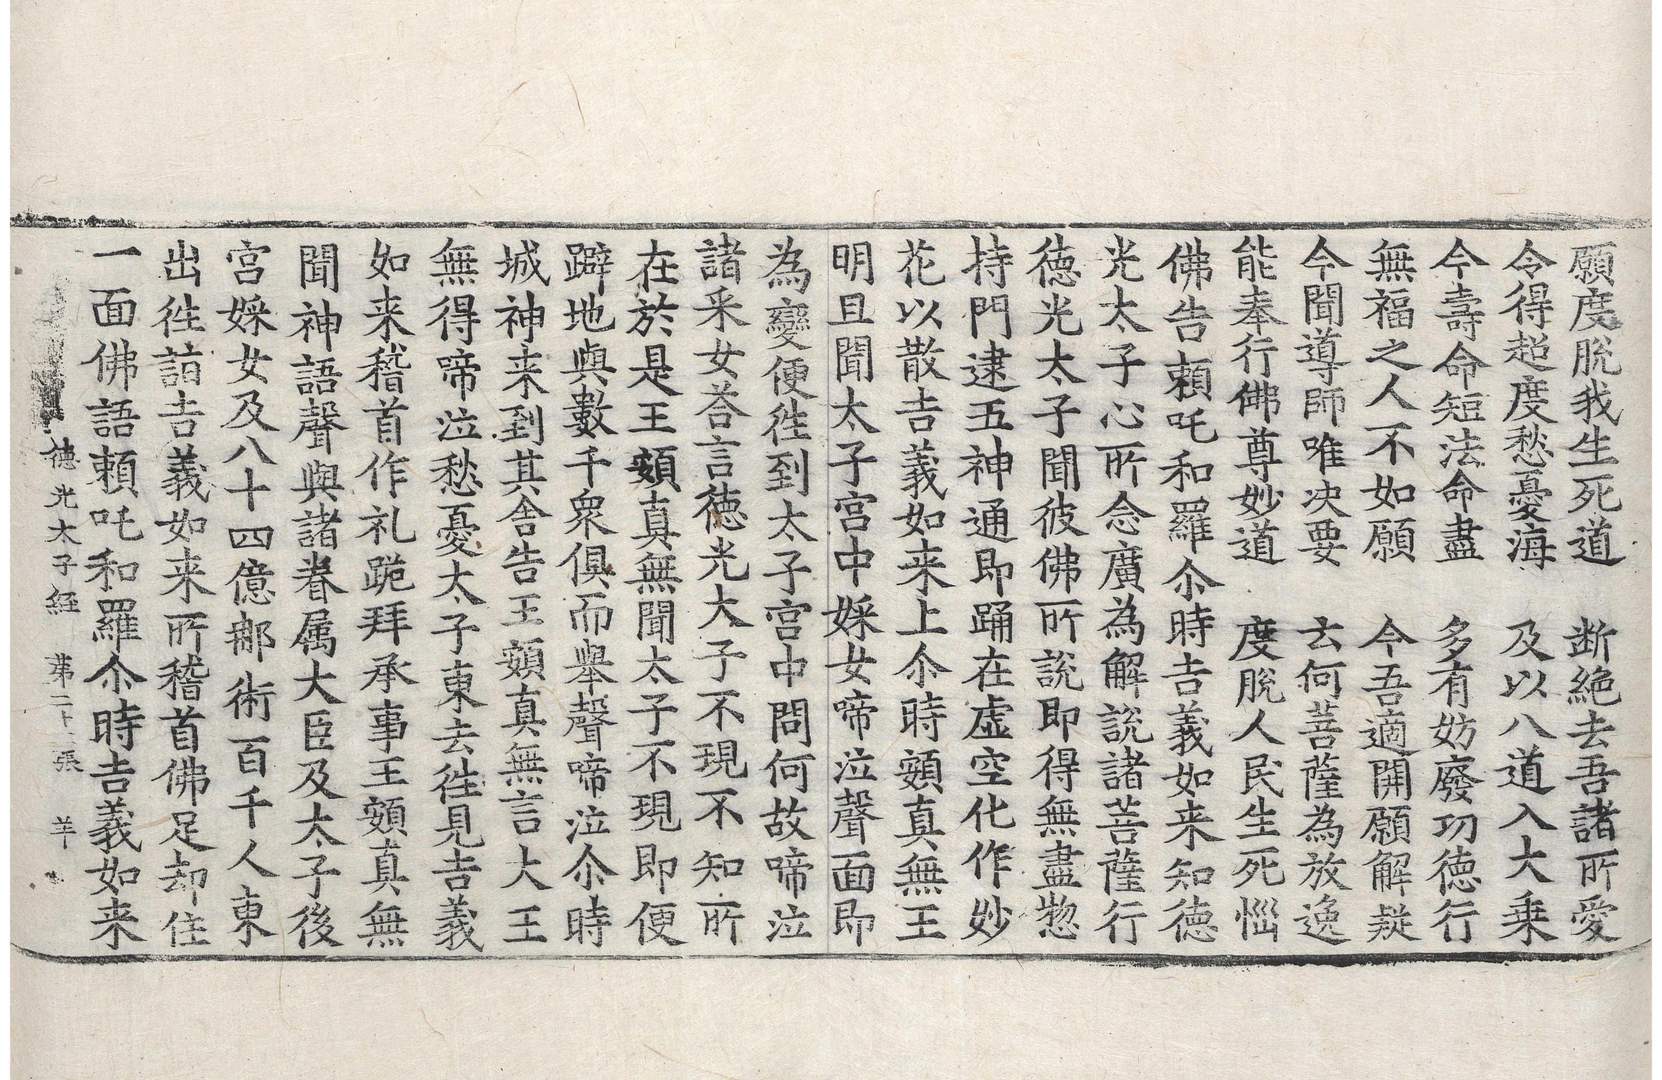 願度脫我生死道　断絶去吾諸所愛
令得超度愁憂海　及以八道入大乗
今壽命短法命盡　多有妨廢功徳行
無福之人不如願　今吾適開願解疑
今聞導師唯决要　云何菩薩為放逸
能奉行佛尊妙道　度脫人民生死惱
佛告頼吒和羅尒時吉義如来知徳
光太子心所念廣為解説諸菩薩行
徳光太子聞彼佛所說即得無盡惣
持門逮五神通即踊在虚空化作妙
花以散吉義如来上尒時頞真無王
明旦聞太子宮中婇女啼泣聲面即
為變便徃到太子宮中問何故啼泣
諸采女荅言徳光太子不現不知所
在於是王頞真無聞太子不現即便
躃地與數千衆俱而舉聲啼泣尒時
城神来到其舎告王頞真無言大王
無得啼泣愁憂太子東去徃見吉義
如来稽首作礼跪拜承事王頞真無
聞神語聲與諸眷属大臣及太子後
宮婇女及八十四億𨚗術百千人東
出徃詣吉義如来所稽首佛足却住
一面佛語頼吒和羅尒時吉義如来
徳光太子經　第二十二張　羊